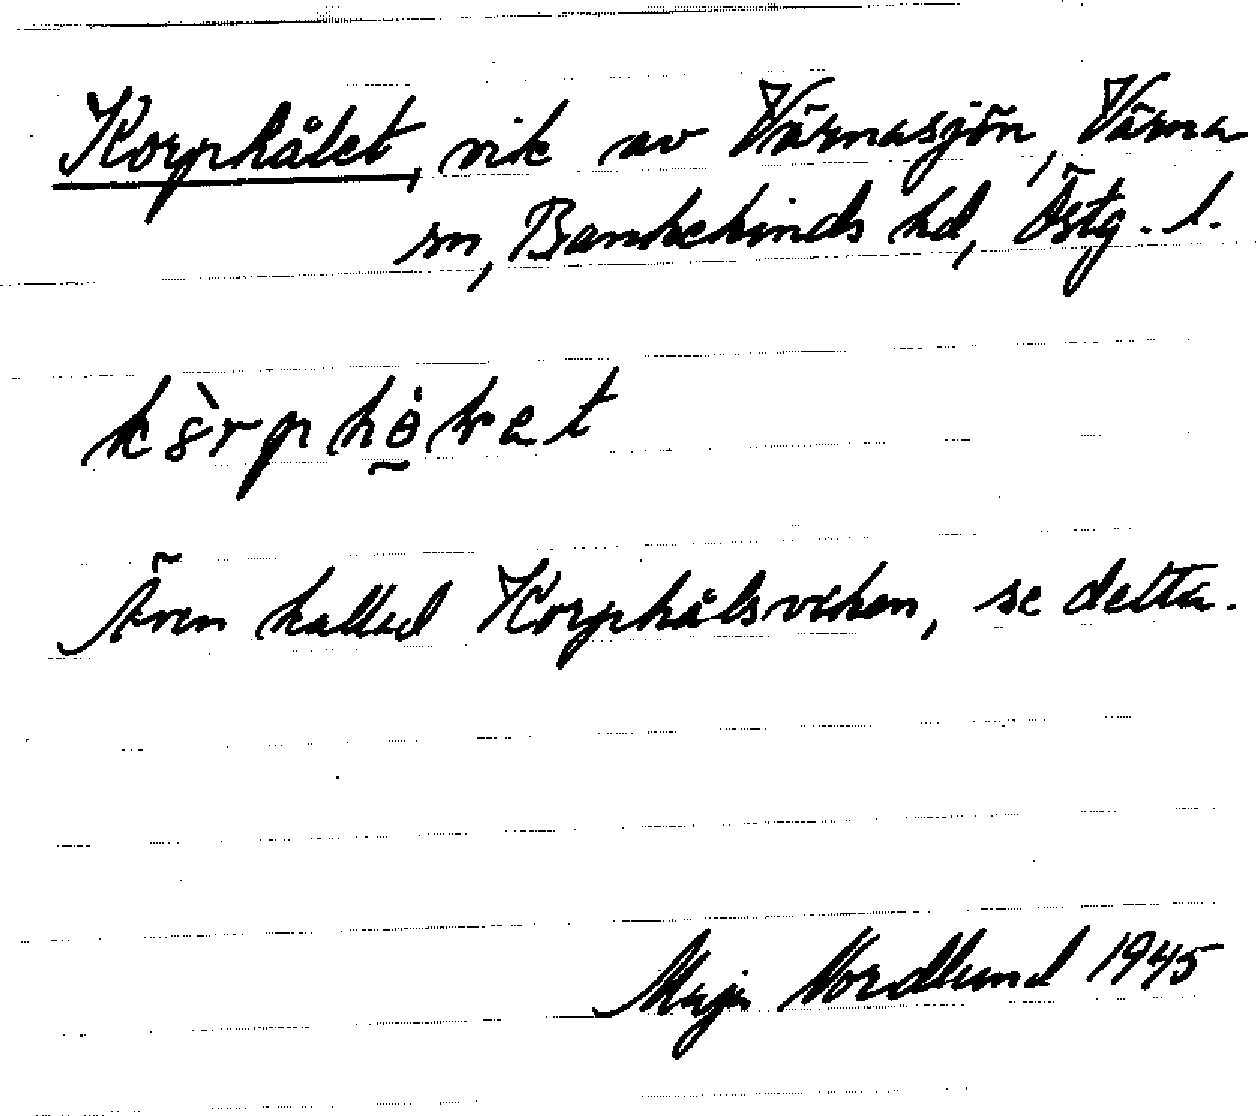 Korphålet, vik av Värnasjön, Värna
sn, Bankekinds hd, Östg. l.
Även kallad Korphålsviken, se detta.
Maja Nordlund 1945